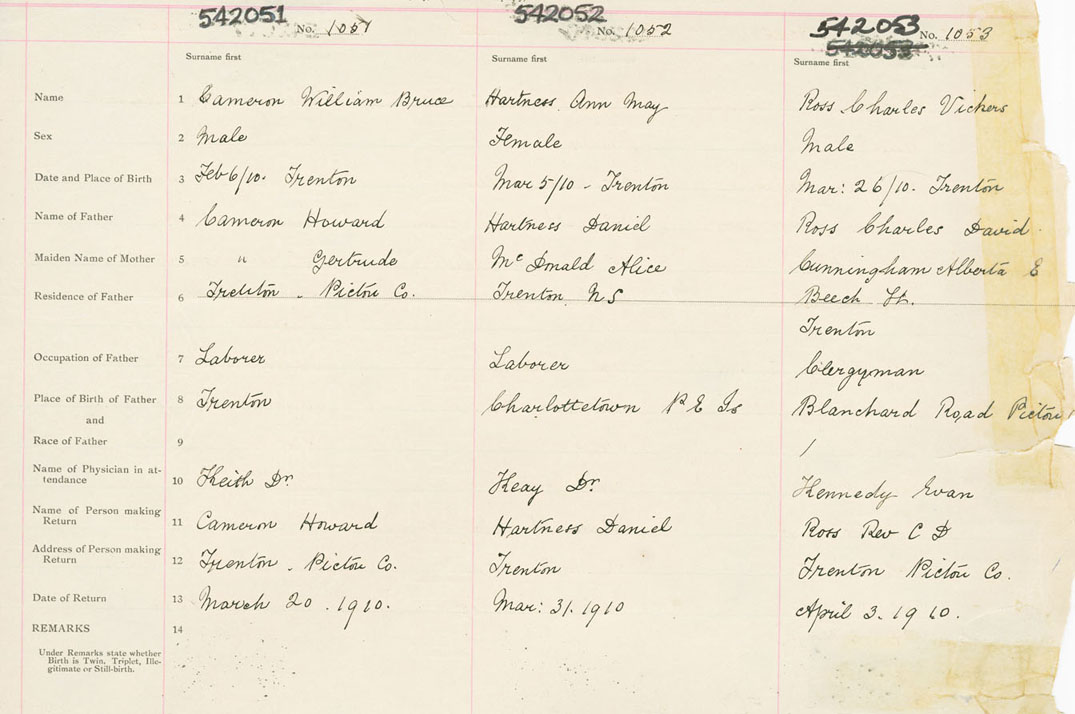 542051 No. 1051 542052 No. 1052 542053 No. 1053
542053
Surname first Surname first Surname first
Name 1 Cameron William Bruce Hartness Ann May Ross Charles Vickers
Sex 2 Male Female Male
Date and Place of Birth 3 Feb 6/10. Trenton Mar 5/10 - Trenton Mar: 26/10. Trenton
Name of Father 4 Cameron Howard Hartness Daniel Ross Charles David
Maiden Name of Mother 5 " Gertrude Mc Donald Alice Cunningham Alberta E
Residence of Father 6 Trenton - Pictou Co. Trenton NS Beech St.
Trenton
Occupation of Father 7 Laborer Laborer Clergyman
Place of Birth of Father 8 Trenton Charlottetown P E Is Blanchard Road Pictou
and
Race of Father 9 /
Name of Physician in at-
tendance 10 Keith Dr. Keay Dr. Kennedy Evan
Name of Person making
Return 11 Cameron Howard Hartness Daniel Ross Rev C D
Address of Person making
Return 12 Trenton - Pictou Co. Trenton Trenton Pictou Co.
Date of Return 13 March 20. 1910. Mar: 31. 1910 April 3. 1910.
REMARKS 14
Under Remarks state whether
Birth is Twin, Triplet, Ille-
gitimate or Still-birth.